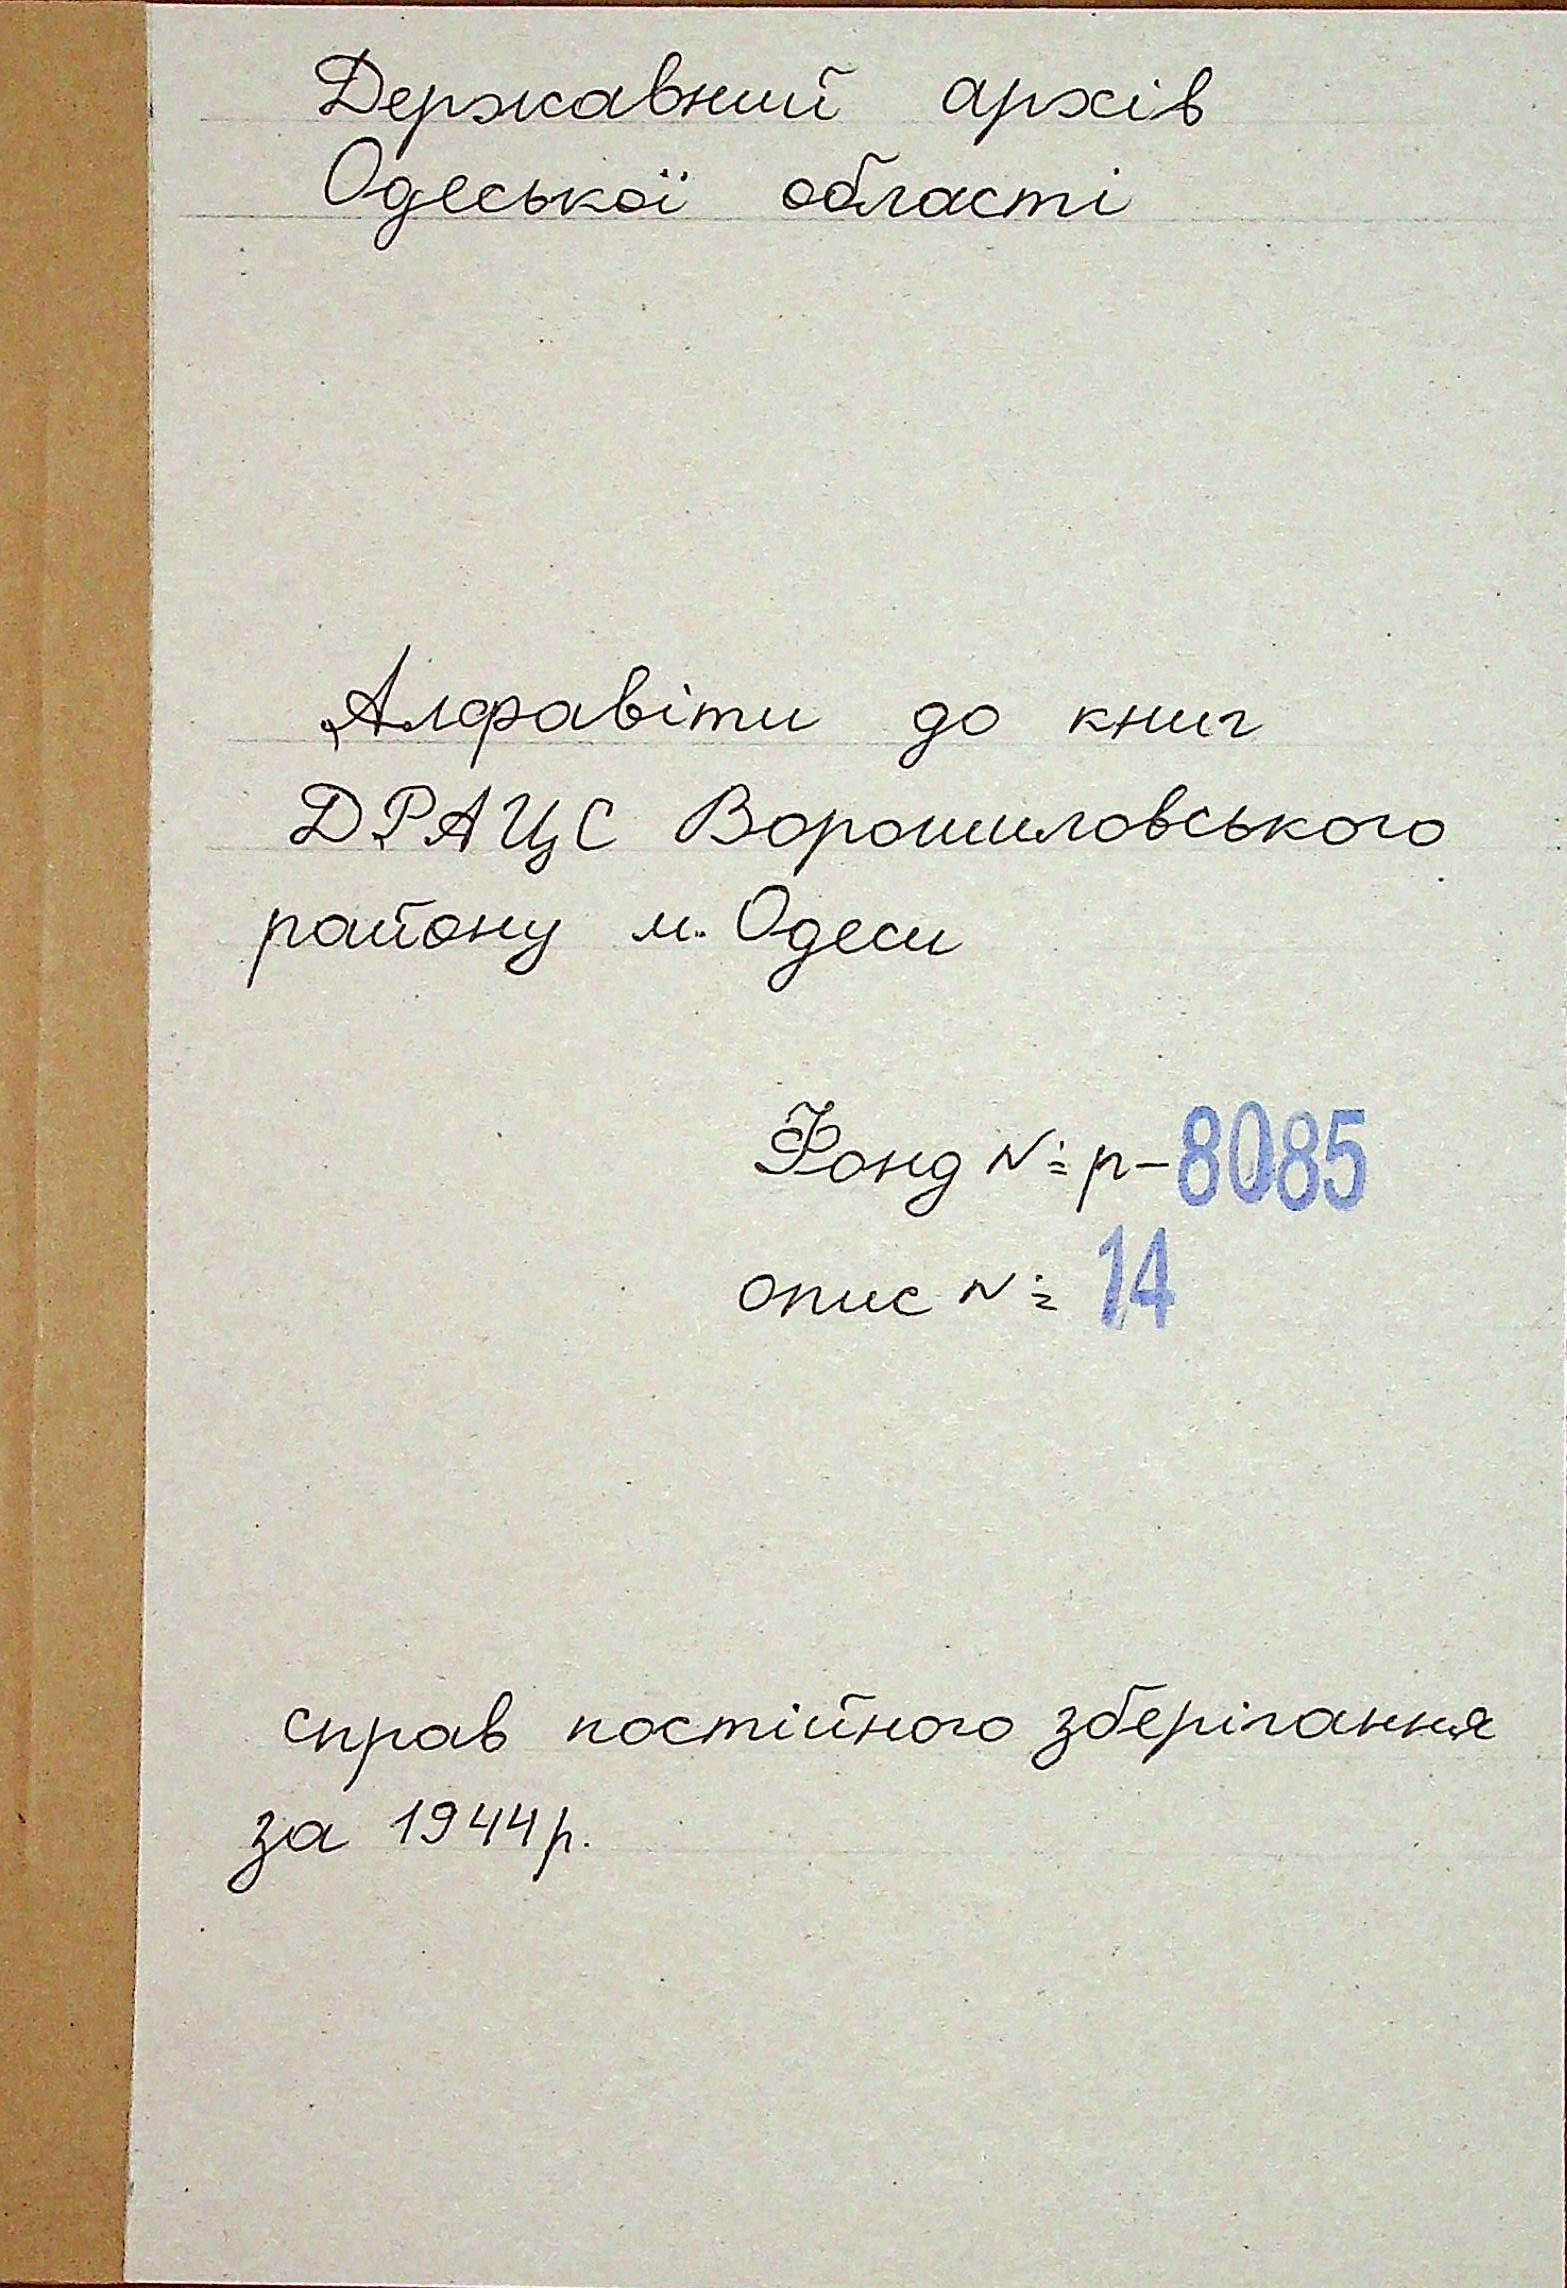 Державний архів
Одеської області
Алфавіти до книг
ДРАЦС Ворошиловського
району м. Одеси
Фонд № р-8085
опис № 14
справ постійного зберігання
за 1944р.